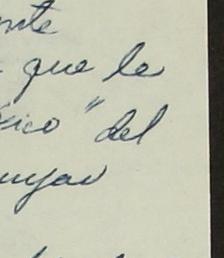 nte
que le
ico" del
uyas